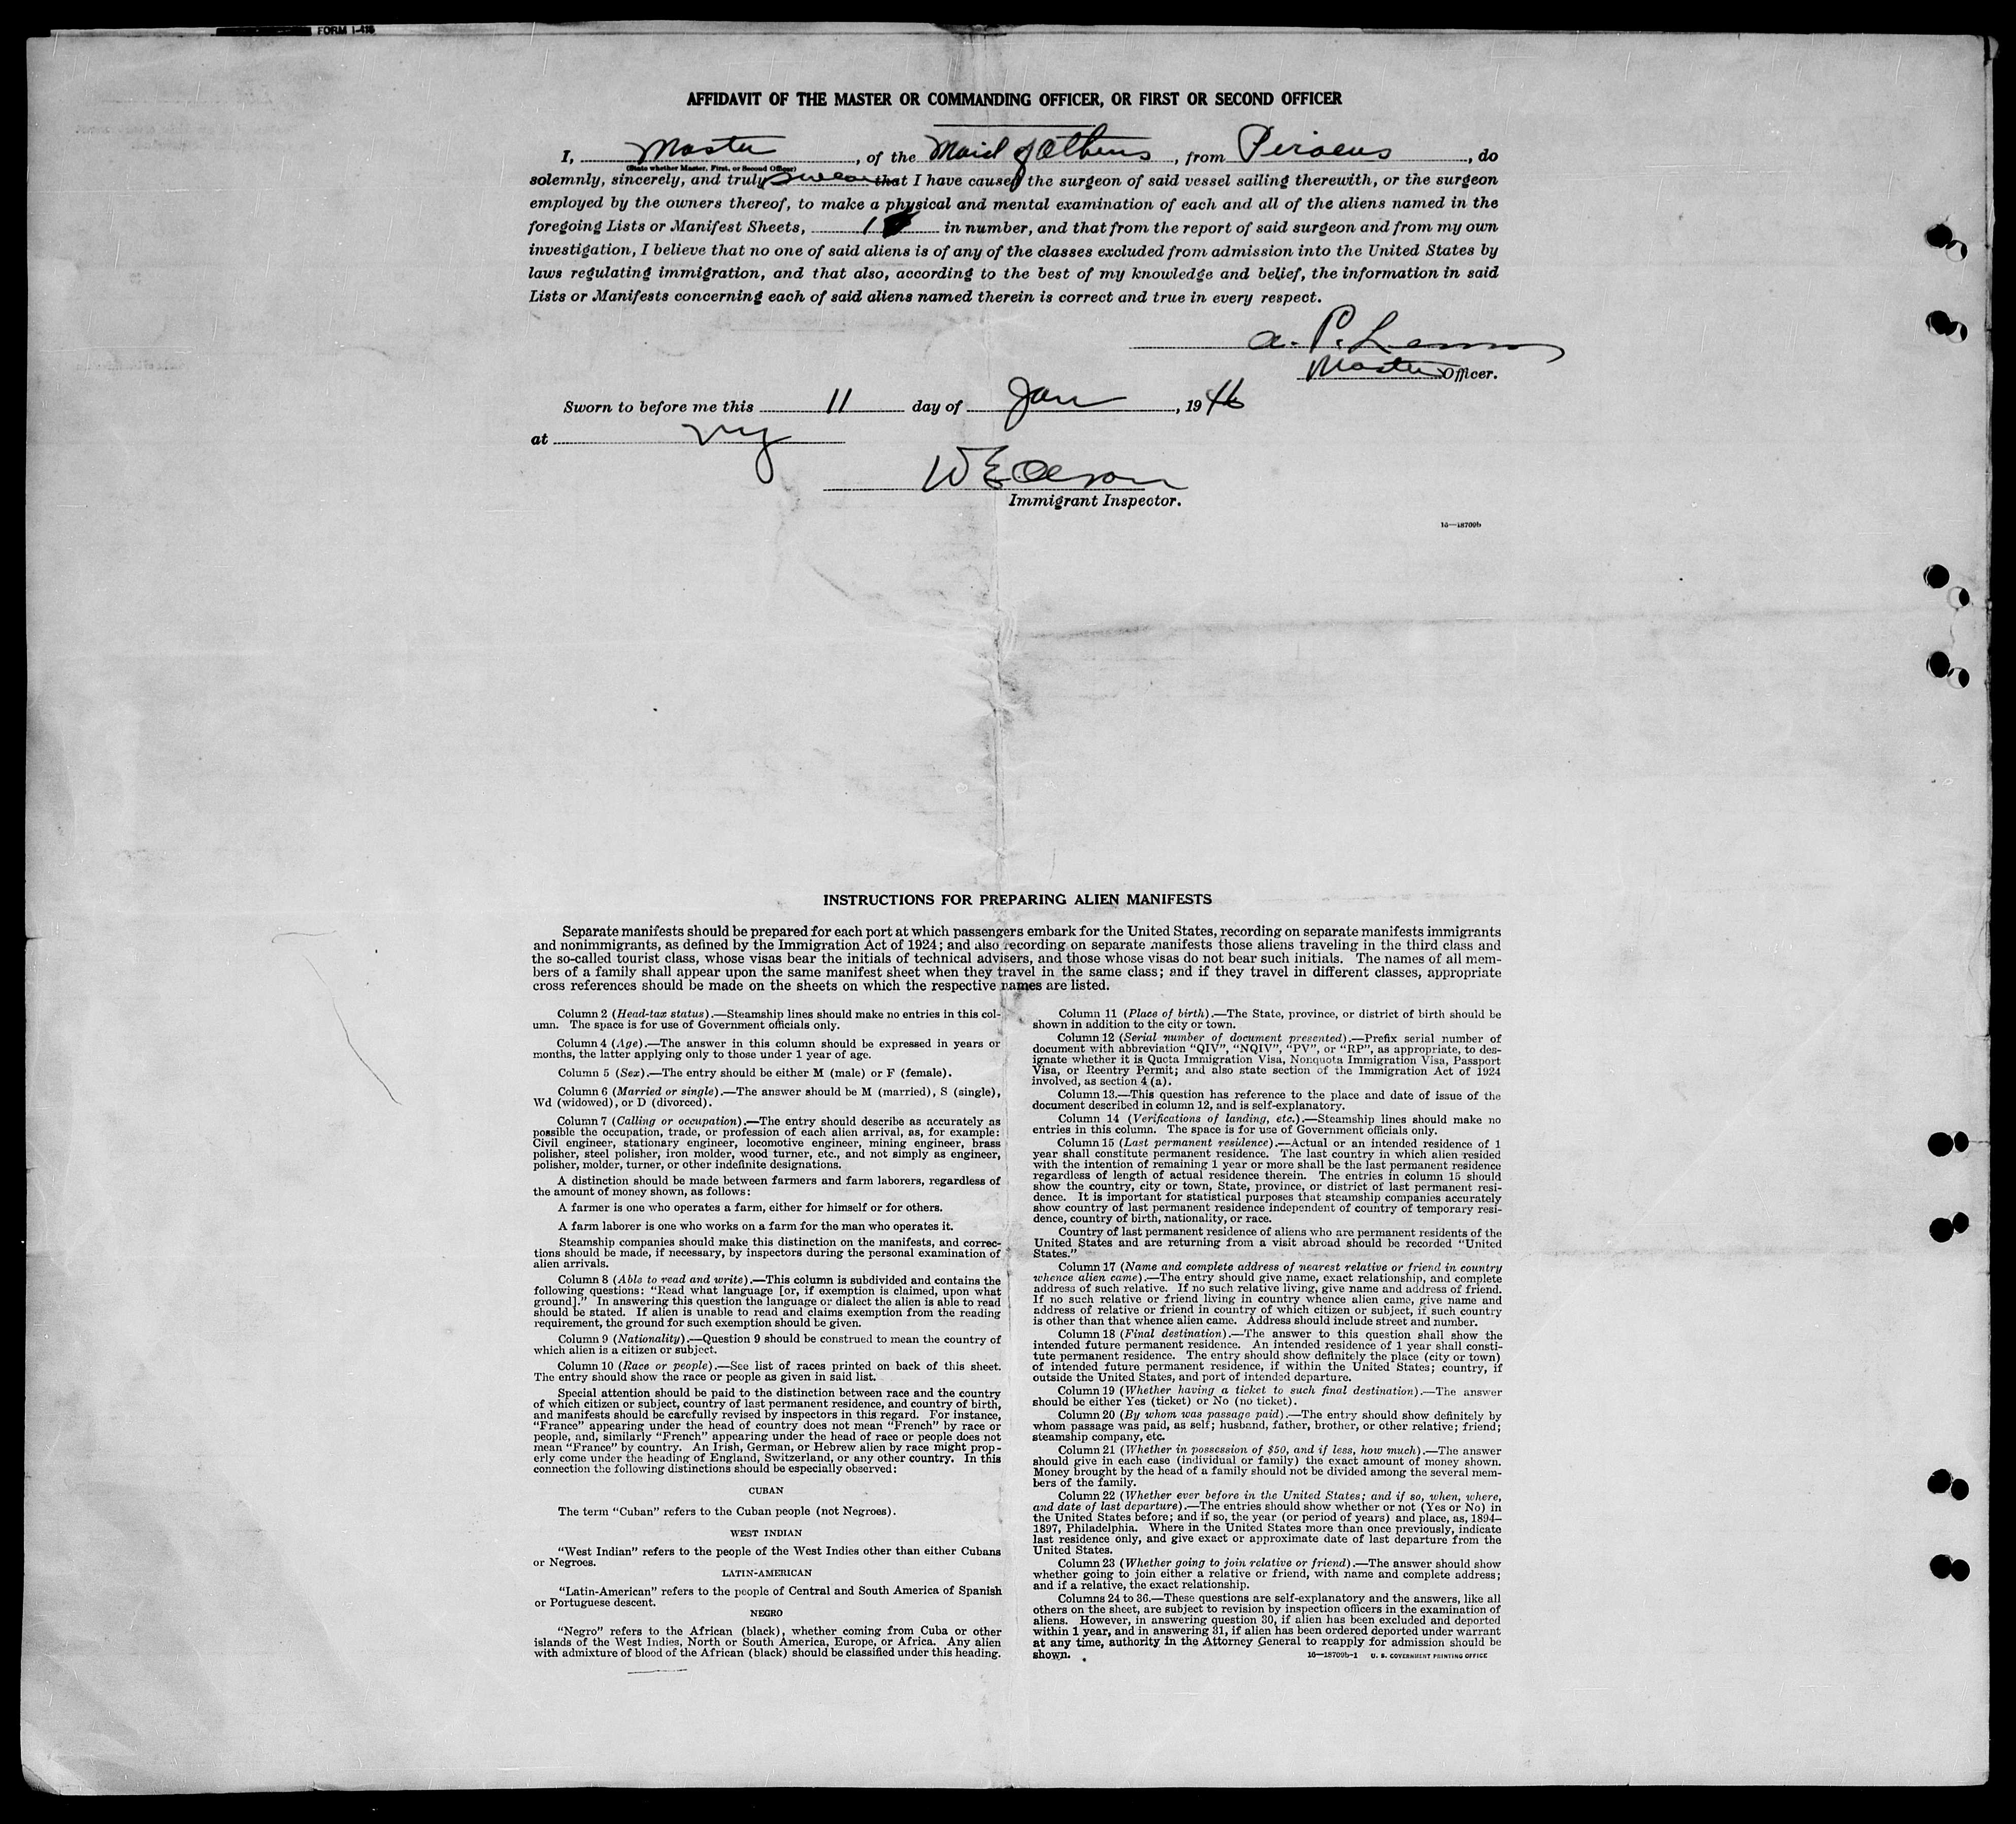 FORM I-416
AFFIDAVIT OF THE MASTER OR COMMANDING OFFICER, OR FIRST OR SECOND OFFICER
I, Master, of the Maid of Athens, from Piraeus, do
(State whether Master, First, or Second Officer)
solemnly, sincerely, and truly swear that I have caused the surgeon of said vessel sailing therewith, or the surgeon
employed by the owners thereof, to make a physical and mental examination of each and all of the aliens named in the
foregoing Lists or Manifest Sheets, 1 in number, and that from the report of said surgeon and from my own
investigation, I believe that no one of said aliens is of any of the classes excluded from admission into the United States by
laws regulating immigration, and that also, according to the best of my knowledge and belief, the information in said
Lists or Manifests concerning each of said aliens named therein is correct and true in every respect.
A. P. Lemos
Master Officer.
Sworn to before me this 11 day of Jan, 1946
at NY
W E Olson
Immigrant Inspector.
16—18709b
INSTRUCTIONS FOR PREPARING ALIEN MANIFESTS
Separate manifests should be prepared for each port at which passengers embark for the United States, recording on separate manifests immigrants
and nonimmigrants, as defined by the Immigration Act of 1924; and also recording on separate manifests those aliens traveling in the third class and
the so-called tourist class, whose visas bear the initials of technical advisers, and those whose visas do not bear such initials. The names of all mem-
bers of a family shall appear upon the same manifest sheet when they travel in the same class; and if they travel in different classes, appropriate
cross references should be made on the sheets on which the respective names are listed.
Column 2 (Head-tax status).—Steamship lines should make no entries in this col-
umn. The space is for use of Government officials only.
Column 4 (Age).—The answer in this column should be expressed in years or
months, the latter applying only to those under 1 year of age.
Column 5 (Sex).—The entry should be either M (male) or F (female).
Column 6 (Married or single).—The answer should be M (married), S (single),
Wd (widowed), or D (divorced).
Column 7 (Calling or occupation).—The entry should describe as accurately as
possible the occupation, trade, or profession of each alien arrival, as, for example:
Civil engineer, stationary engineer, locomotive engineer, mining engineer, brass
polisher, steel polisher, iron molder, wood turner, etc., and not simply as engineer,
polisher, molder, turner, or other indefinite designations.
A distinction should be made between farmers and farm laborers, regardless of
the amount of money shown, as follows:
A farmer is one who operates a farm, either for himself or for others.
A farm laborer is one who works on a farm for the man who operates it.
Steamship companies should make this distinction on the manifests, and correc-
tions should be made, if necessary, by inspectors during the personal examination of
alien arrivals.
Column 8 (Able to read and write).—This column is subdivided and contains the
following questions: “Read what language [or, if exemption is claimed, upon what
ground].” In answering this question the language or dialect the alien is able to read
should be stated. If alien is unable to read and claims exemption from the reading
requirement, the ground for such exemption should be given.
Column 9 (Nationality).—Question 9 should be construed to mean the country of
which alien is a citizen or subject.
Column 10 (Race or people).—See list of races printed on back of this sheet.
The entry should show the race or people as given in said list.
Special attention should be paid to the distinction between race and the country
of which citizen or subject, country of last permanent residence, and country of birth,
and manifests should be carefully revised by inspectors in this regard. For instance,
“France” appearing under the head of country does not mean “French” by race or
people, and, similarly “French” appearing under the head of race or people does not
mean “France” by country. An Irish, German, or Hebrew alien by race might prop-
erly come under the heading of England, Switzerland, or any other country. In this
connection the following distinctions should be especially observed:
CUBAN
The term “Cuban” refers to the Cuban people (not Negroes).
WEST INDIAN
“West Indian” refers to the people of the West Indies other than either Cubans
or Negroes.
LATIN-AMERICAN
“Latin-American” refers to the people of Central and South America of Spanish
or Portuguese descent.
NEGRO
“Negro” refers to the African (black), whether coming from Cuba or other
islands of the West Indies, North or South America, Europe, or Africa. Any alien
with admixture of blood of the African (black) should be classified under this heading.
Column 11 (Place of birth).—The State, province, or district of birth should be
shown in addition to the city or town.
Column 12 (Serial number of document presented).—Prefix serial number of
document with abbreviation “QIV”, “NQIV”, “PV”, or “RP”, as appropriate, to des-
ignate whether it is Quota Immigration Visa, Nonquota Immigration Visa, Passport
Visa, or Reentry Permit; and also state section of the Immigration Act of 1924
involved, as section 4 (a).
Column 13.—This question has reference to the place and date of issue of the
document described in column 12, and is self-explanatory.
Column 14 (Verifications of landing, etc.).—Steamship lines should make no
entries in this column. The space is for use of Government officials only.
Column 15 (Last permanent residence).—Actual or an intended residence of 1
year shall constitute permanent residence. The last country in which alien resided
with the intention of remaining 1 year or more shall be the last permanent residence
regardless of length of actual residence therein. The entries in column 15 should
show the country, city or town, State, province, or district of last permanent resi-
dence. It is important for statistical purposes that steamship companies accurately
show country of last permanent residence independent of country of temporary resi-
dence, country of birth, nationality, or race.
Country of last permanent residence of aliens who are permanent residents of the
United States and are returning from a visit abroad should be recorded “United
States.”
Column 17 (Name and complete address of nearest relative or friend in country
whence alien came).—The entry should give name, exact relationship, and complete
address of such relative. If no such relative living, give name and address of friend.
If no such relative or friend living in country whence alien came, give name and
address of relative or friend in country of which citizen or subject, if such country
is other than that whence alien came. Address should include street and number.
Column 18 (Final destination).—The answer to this question shall show the
intended future permanent residence. An intended residence of 1 year shall consti-
tute permanent residence. The entry should show definitely the place (city or town)
of intended future permanent residence, if within the United States; country, if
outside the United States, and port of intended departure.
Column 19 (Whether having a ticket to such final destination).—The answer
should be either Yes (ticket) or No (no ticket).
Column 20 (By whom was passage paid).—The entry should show definitely by
whom passage was paid, as self; husband, father, brother, or other relative; friend;
steamship company, etc.
Column 21 (Whether in possession of $50, and if less, how much).—The answer
should give in each case (individual or family) the exact amount of money shown.
Money brought by the head of a family should not be divided among the several mem-
bers of the family.
Column 22 (Whether ever before in the United States; and if so, when, where,
and date of last departure).—The entries should show whether or not (Yes or No) in
the United States before; and if so, the year (or period of years) and place, as, 1894–
1897, Philadelphia. Where in the United States more than once previously, indicate
last residence only, and give exact or approximate date of last departure from the
United States.
Column 23 (Whether going to join relative or friend).—The answer should show
whether going to join either a relative or friend, with name and complete address;
and if a relative, the exact relationship.
Columns 24 to 36.—These questions are self-explanatory and the answers, like all
others on the sheet, are subject to revision by inspection officers in the examination of
aliens. However, in answering question 30, if alien has been excluded and deported
within 1 year, and in answering 31, if alien has been ordered deported under warrant
at any time, authority in the Attorney General to reapply for admission should be
shown.
16—18709b-1 U. S. GOVERNMENT PRINTING OFFICE